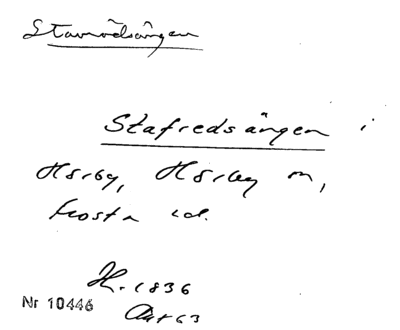 Stavrödsängen
Stafredsängen i
Hörby, Hörby m,
Frosta hd.
H. 1836
Nr 10446
Akt 63